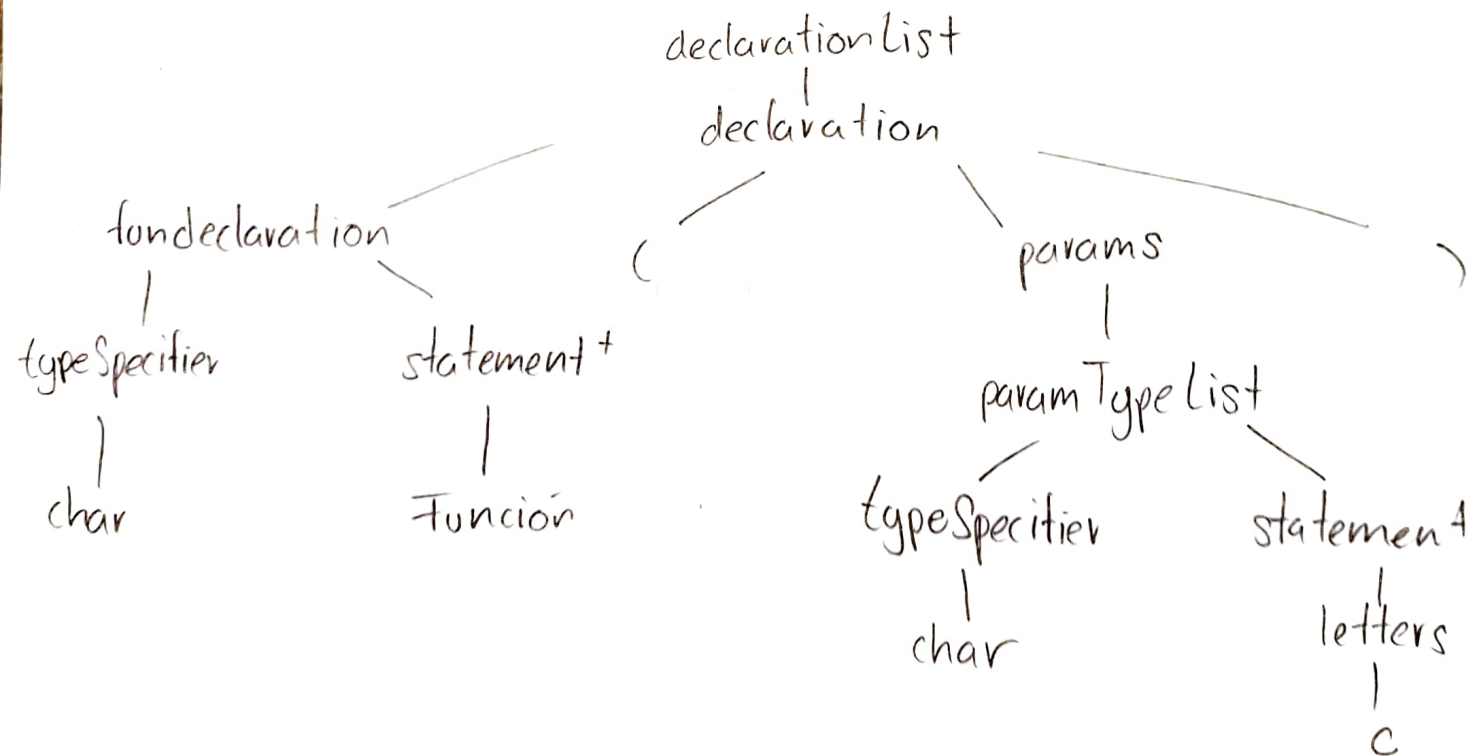 declarationList
declaration
fundeclaration ( params )
typeSpecifier statement paramTypeList
char Función typeSpecifier statement
char letters
c